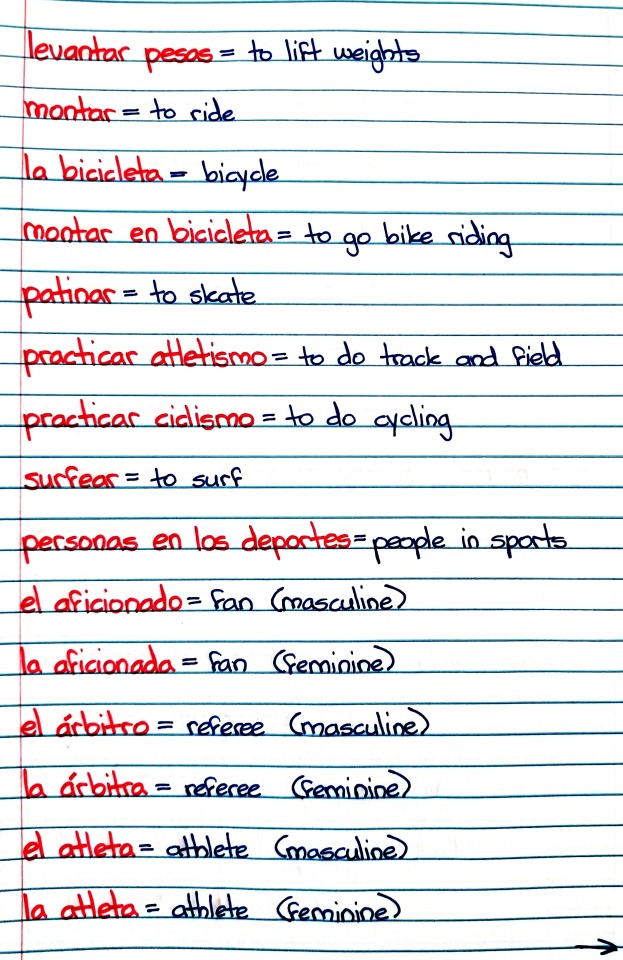 levantar pesas = to lift weights
montar = to ride
la bicicleta = bicycle
montar en bicicleta = to go bike riding
patinar = to skate
practicar atletismo = to do track and field
practicar ciclismo = to do cycling
surfear = to surf
personas en los deportes = people in sports
el aficionado = fan (masculine)
la aficionada = fan (feminine)
el árbitro = referee (masculine)
la árbitra = referee (feminine)
el atleta = athlete (masculine)
la atleta = athlete (feminine)
→